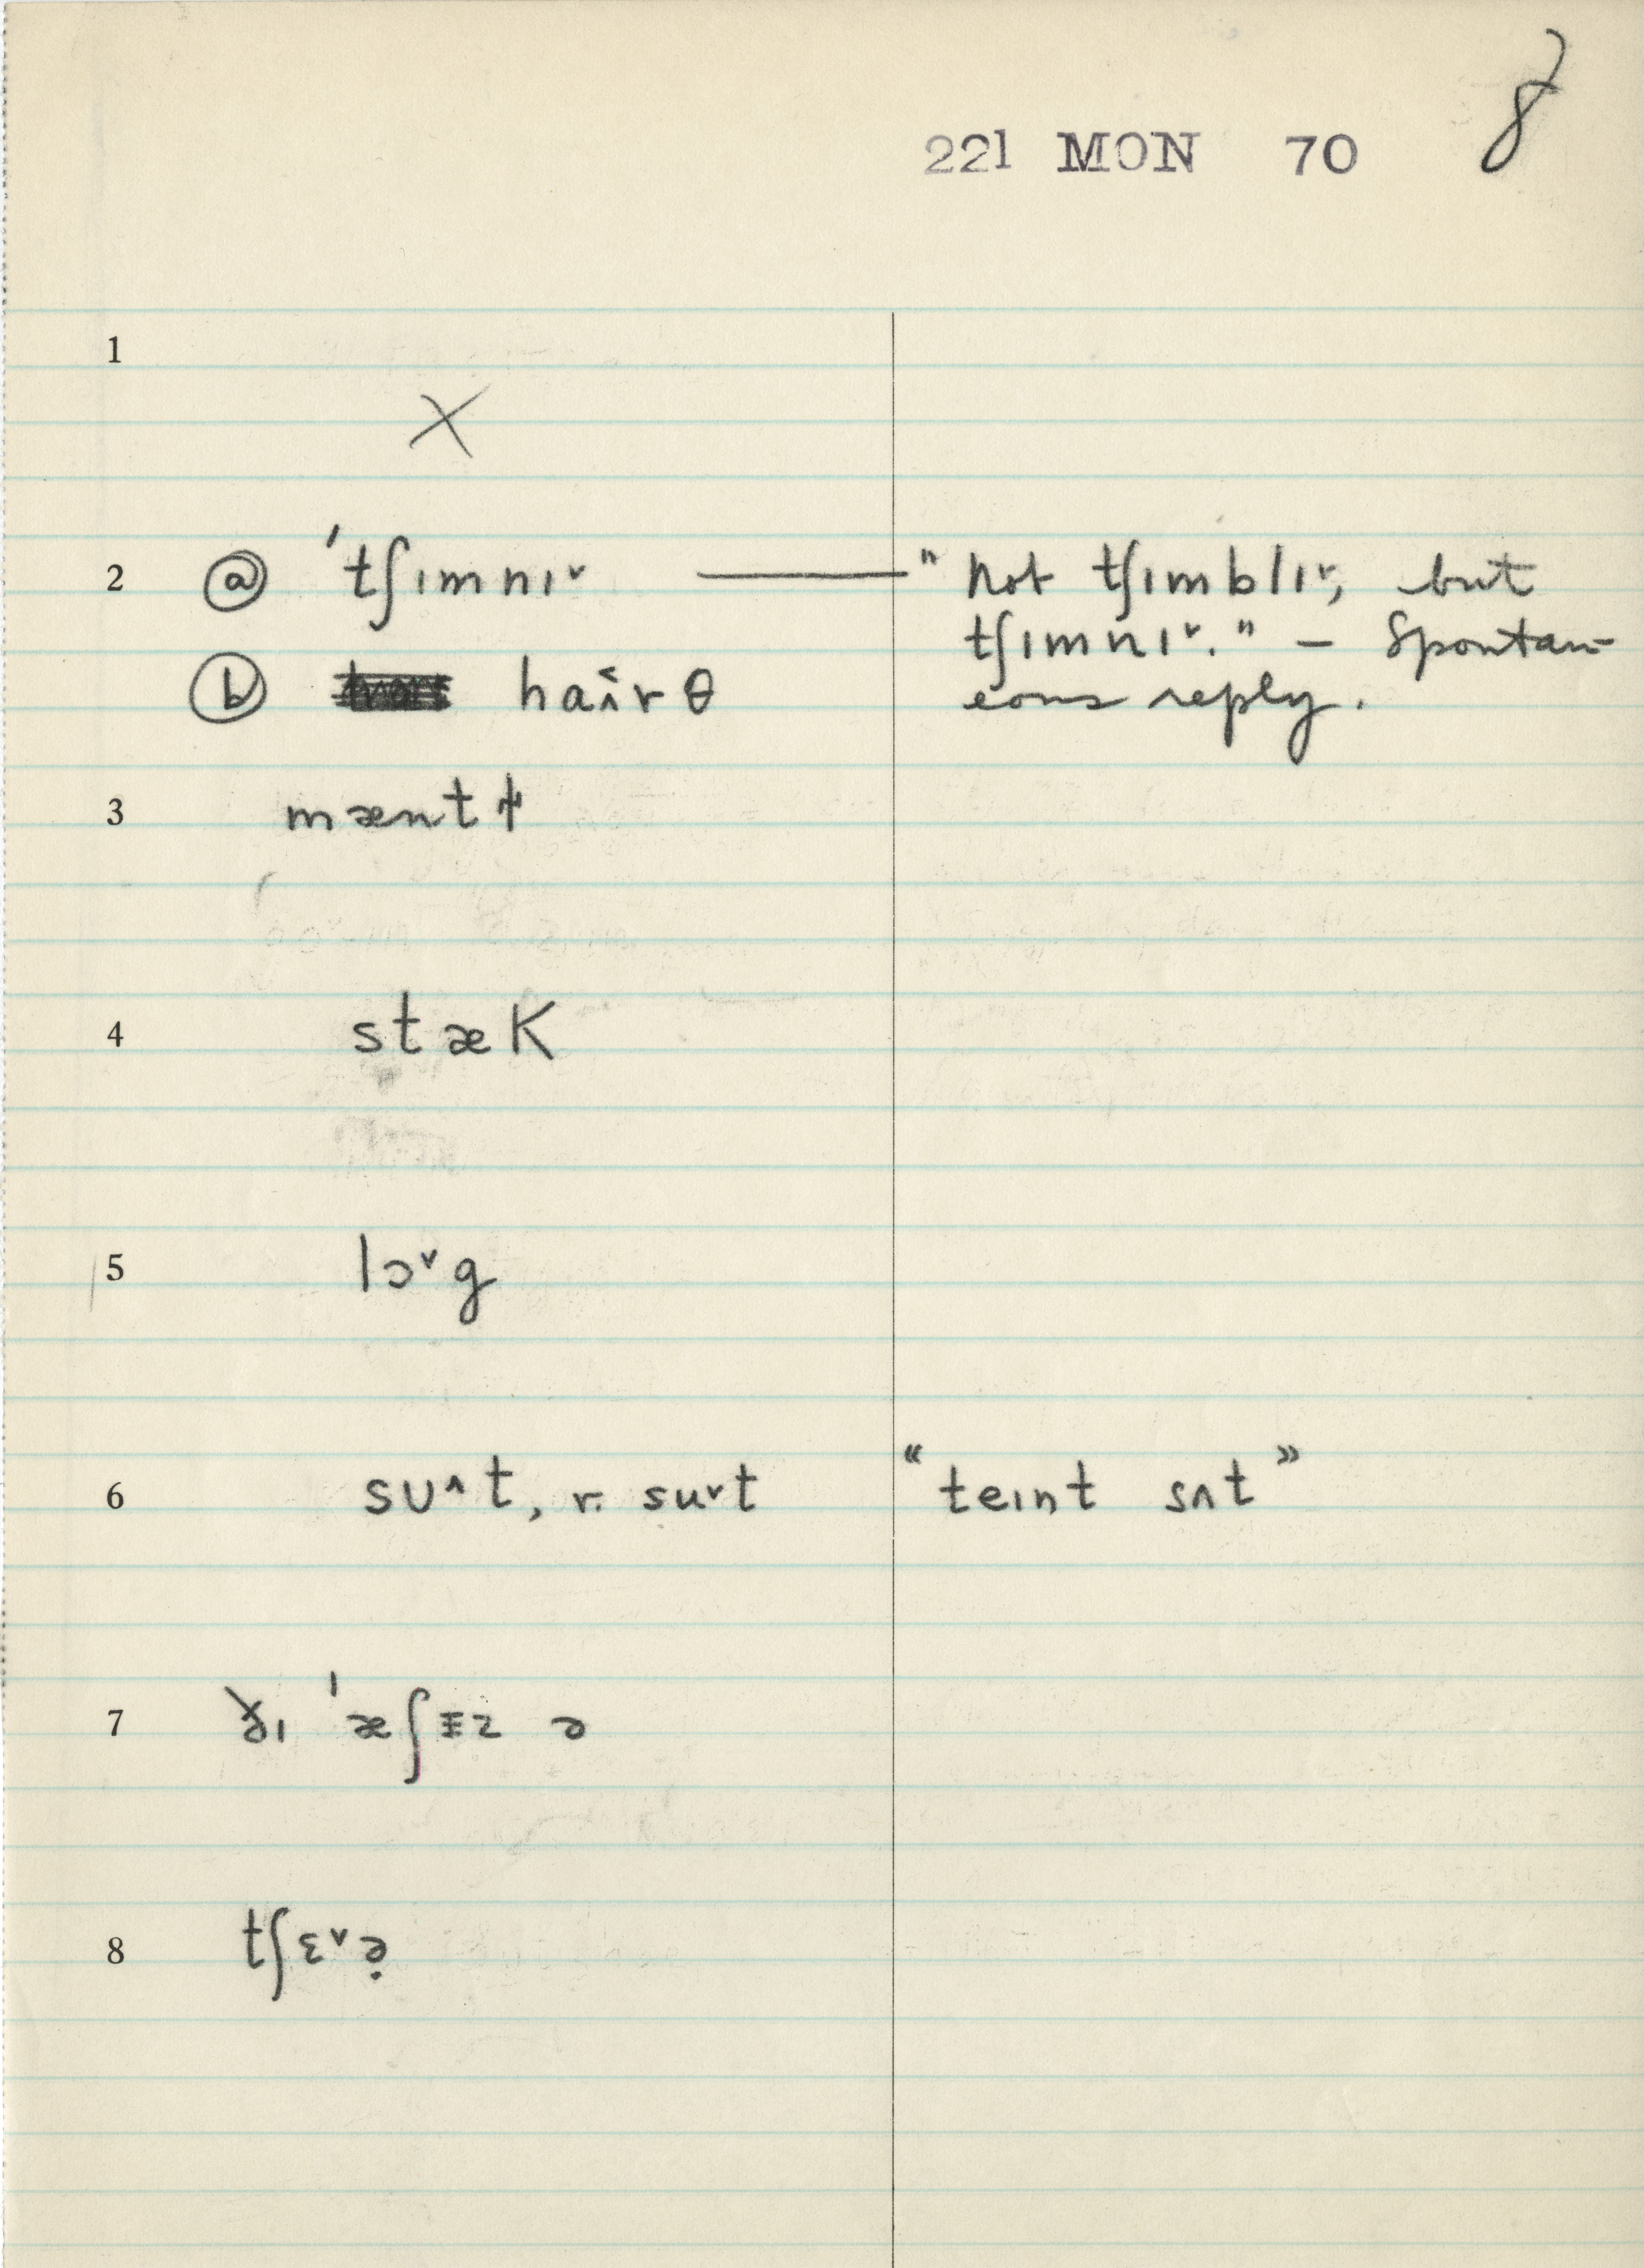 221 MON 70 8
1
X
2 ⓐ ˈtʃɪmnɪ˅ — " Not tʃɪmblɪ˅, but
tʃɪmnɪ˅." – Spontan-
ⓑ haɪ˂rθ eous reply.
3 mænt
4 stæK
5 lɔ˅g
6 sᴜ˄t, r. su˅t “teɪnt sʌt”
7 ðɪ ˈæʃɪz ə
8 tʃɛ˅ə̣